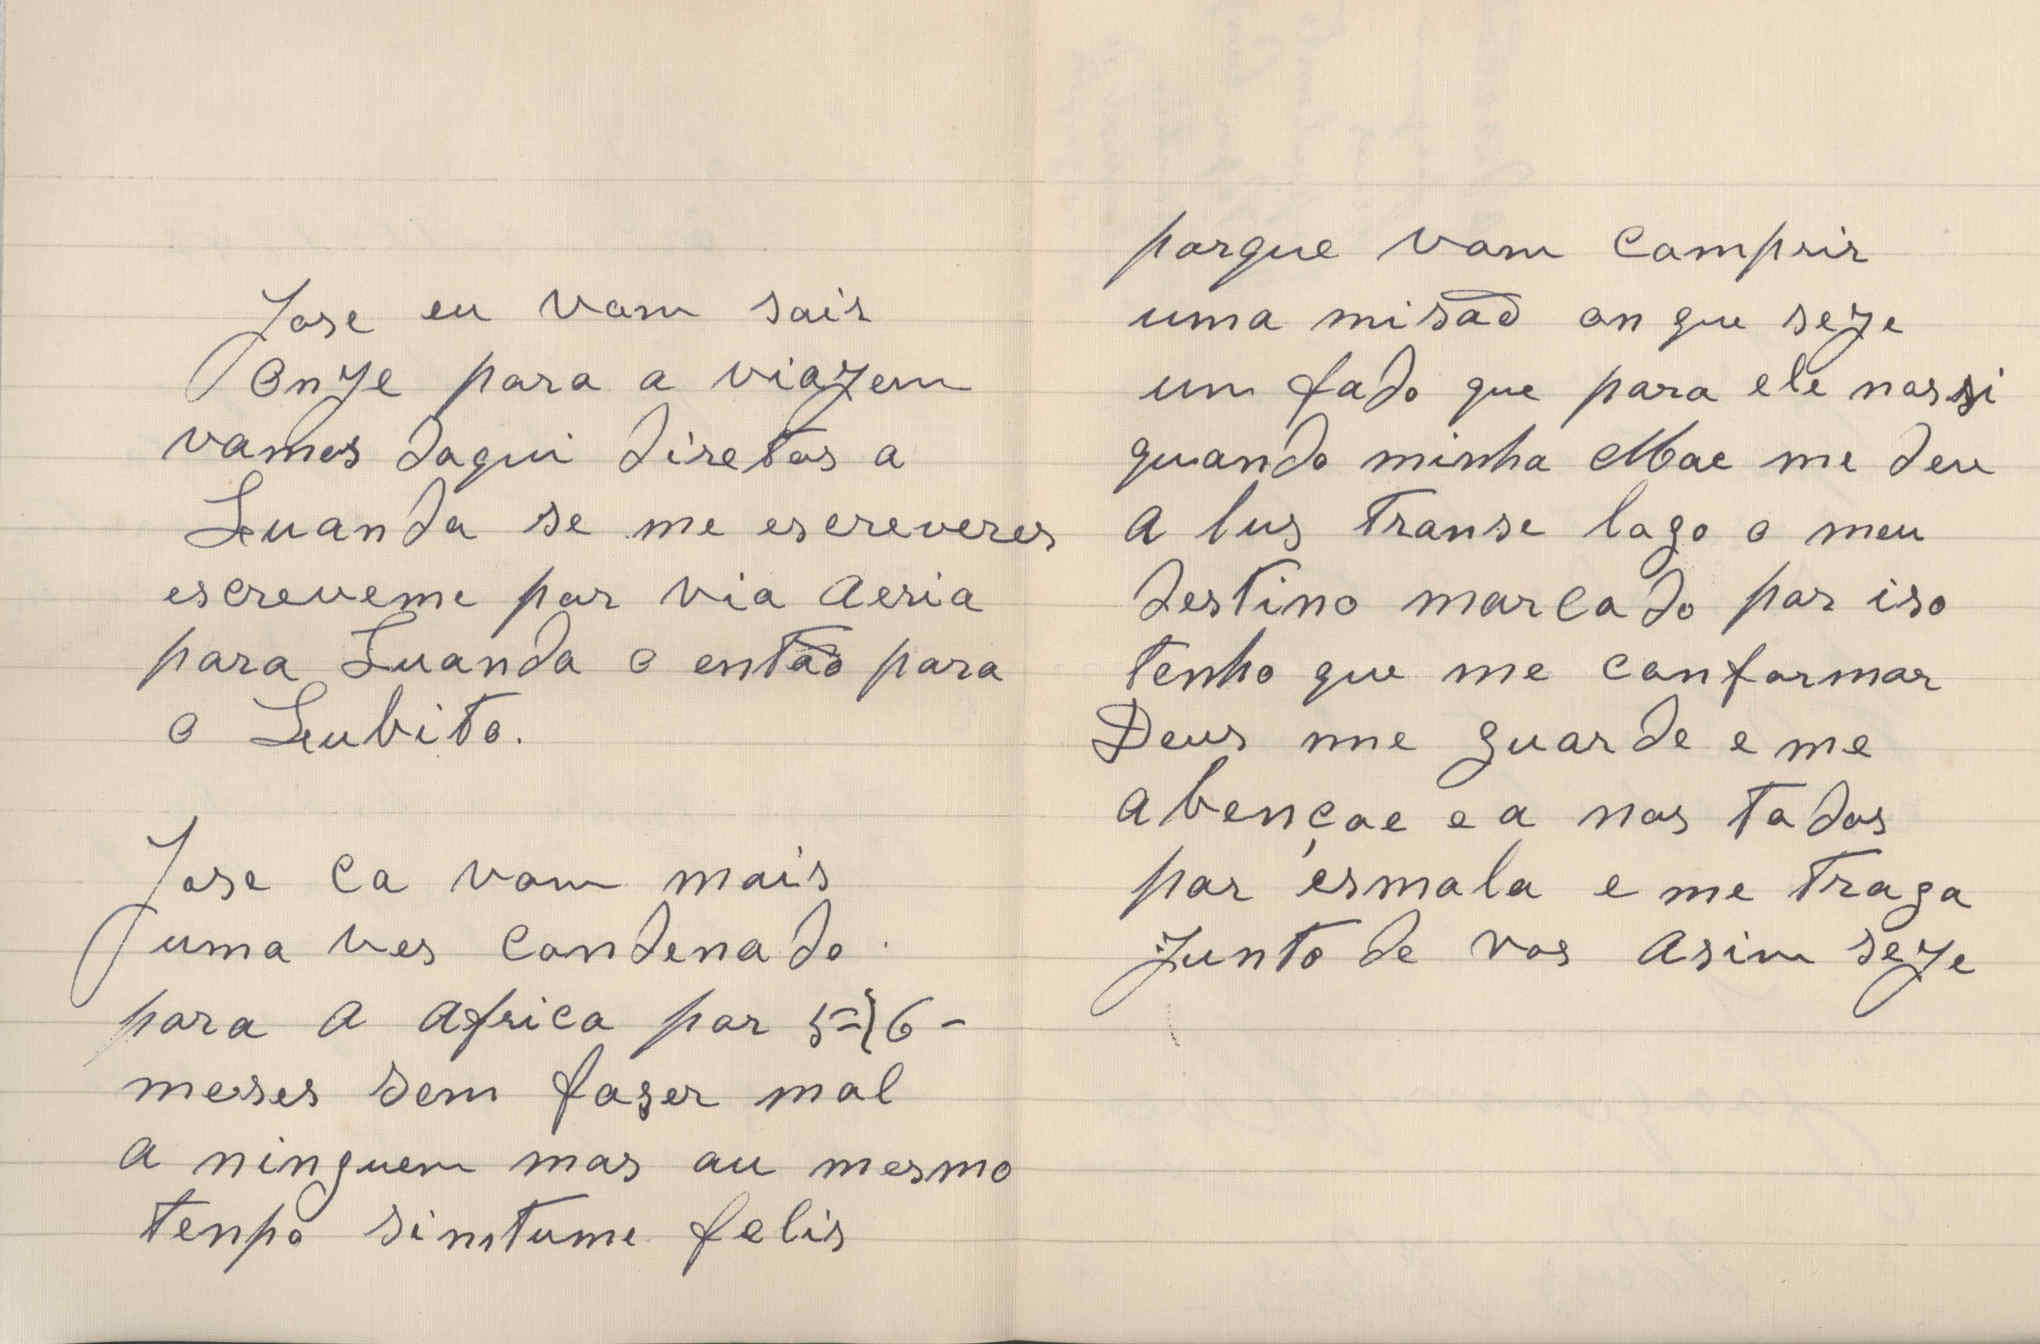 Jose eu vom sair
onje para a viajem
vamos daqui diretos a
Luanda se me escreveres
escreveme por via aeria
para Luanda o então para
o Lubito.
Jose ca vom mais
uma ves condenado
para a africa por 5=}6-
meses sem faser mal
a ninguem mas au mesmo
tenpo simtume felis
porque vom comprir
uma misão on que seje
um fado que para ele nassi
quando minha Mae me deu
a lus transe logo o meu
destino marcado por iso
tenho que me conformar
Deus me guarde e me
abençoe e a nos todos
por esmola e me traga
junto de vos asim seje